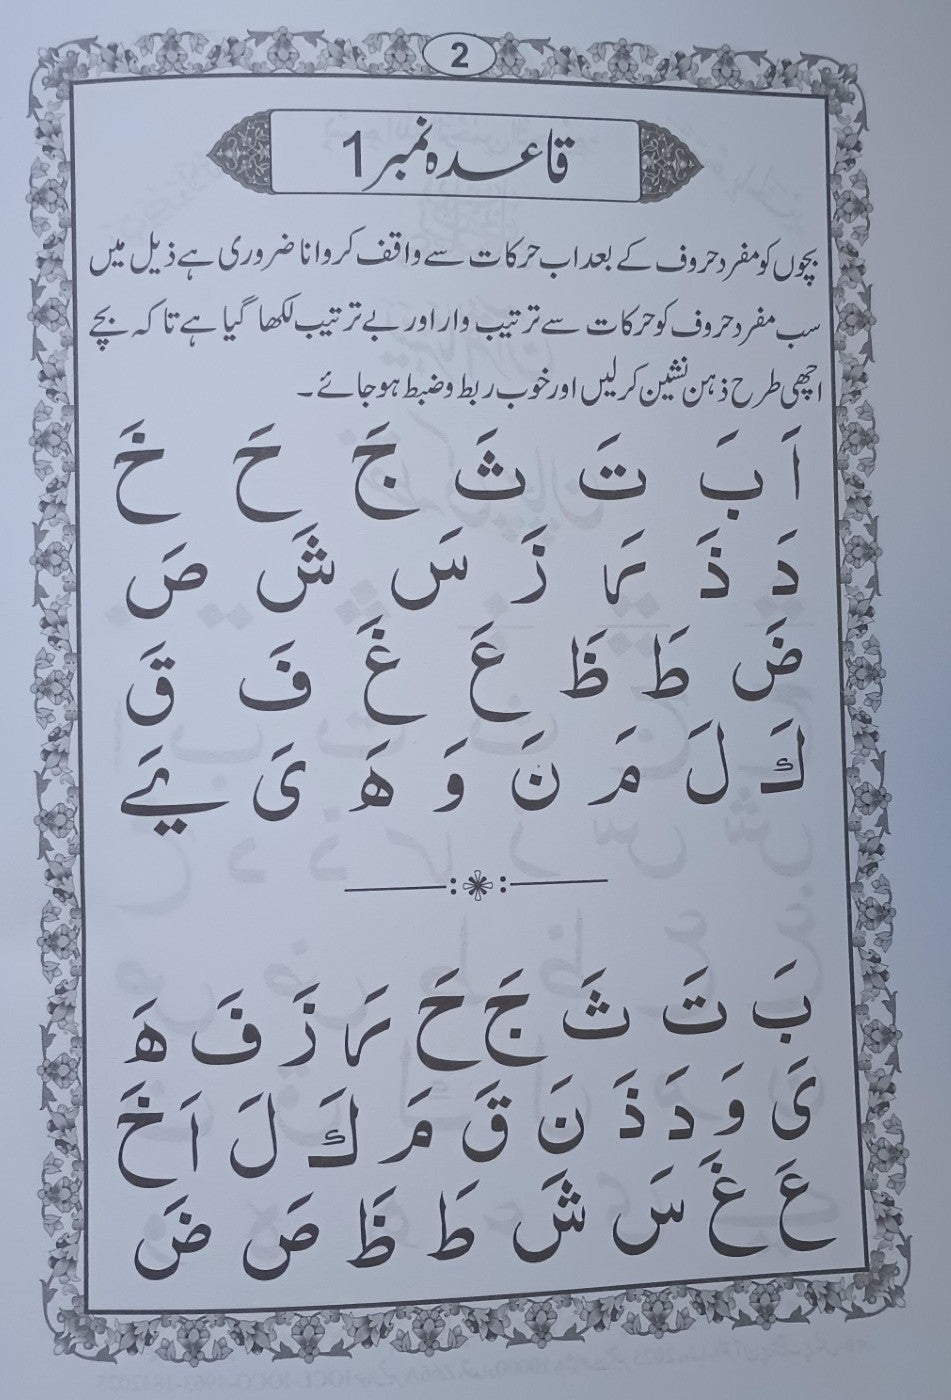 2
قاعدہ نمبر 1
بچوں کو مفرد حروف کے بعد اب حرکات سے واقف کروانا ضروری ہے ذیل میں
سب مفرد حروف کو حرکات سے ترتیب وار اور بے ترتیب لکھا گیا ہے تاکہ بچے
اچھی طرح ذہن نشین کرلیں اور خوب ربط وضبط ہو جائے۔
اَ بَ تَ ثَ جَ حَ خَ
دَ ذَ رَ زَ سَ شَ صَ
ضَ طَ ظَ عَ غَ فَ قَ
كَ لَ مَ نَ وَ هَ یَ یَے
بَ تَ ثَ جَ حَ رَ زَ فَ هَ
یَ وَ دَ ذَ نَ قَ مَ كَ لَ اَ خَ
عَ غَ سَ شَ طَ ظَ صَ ضَ